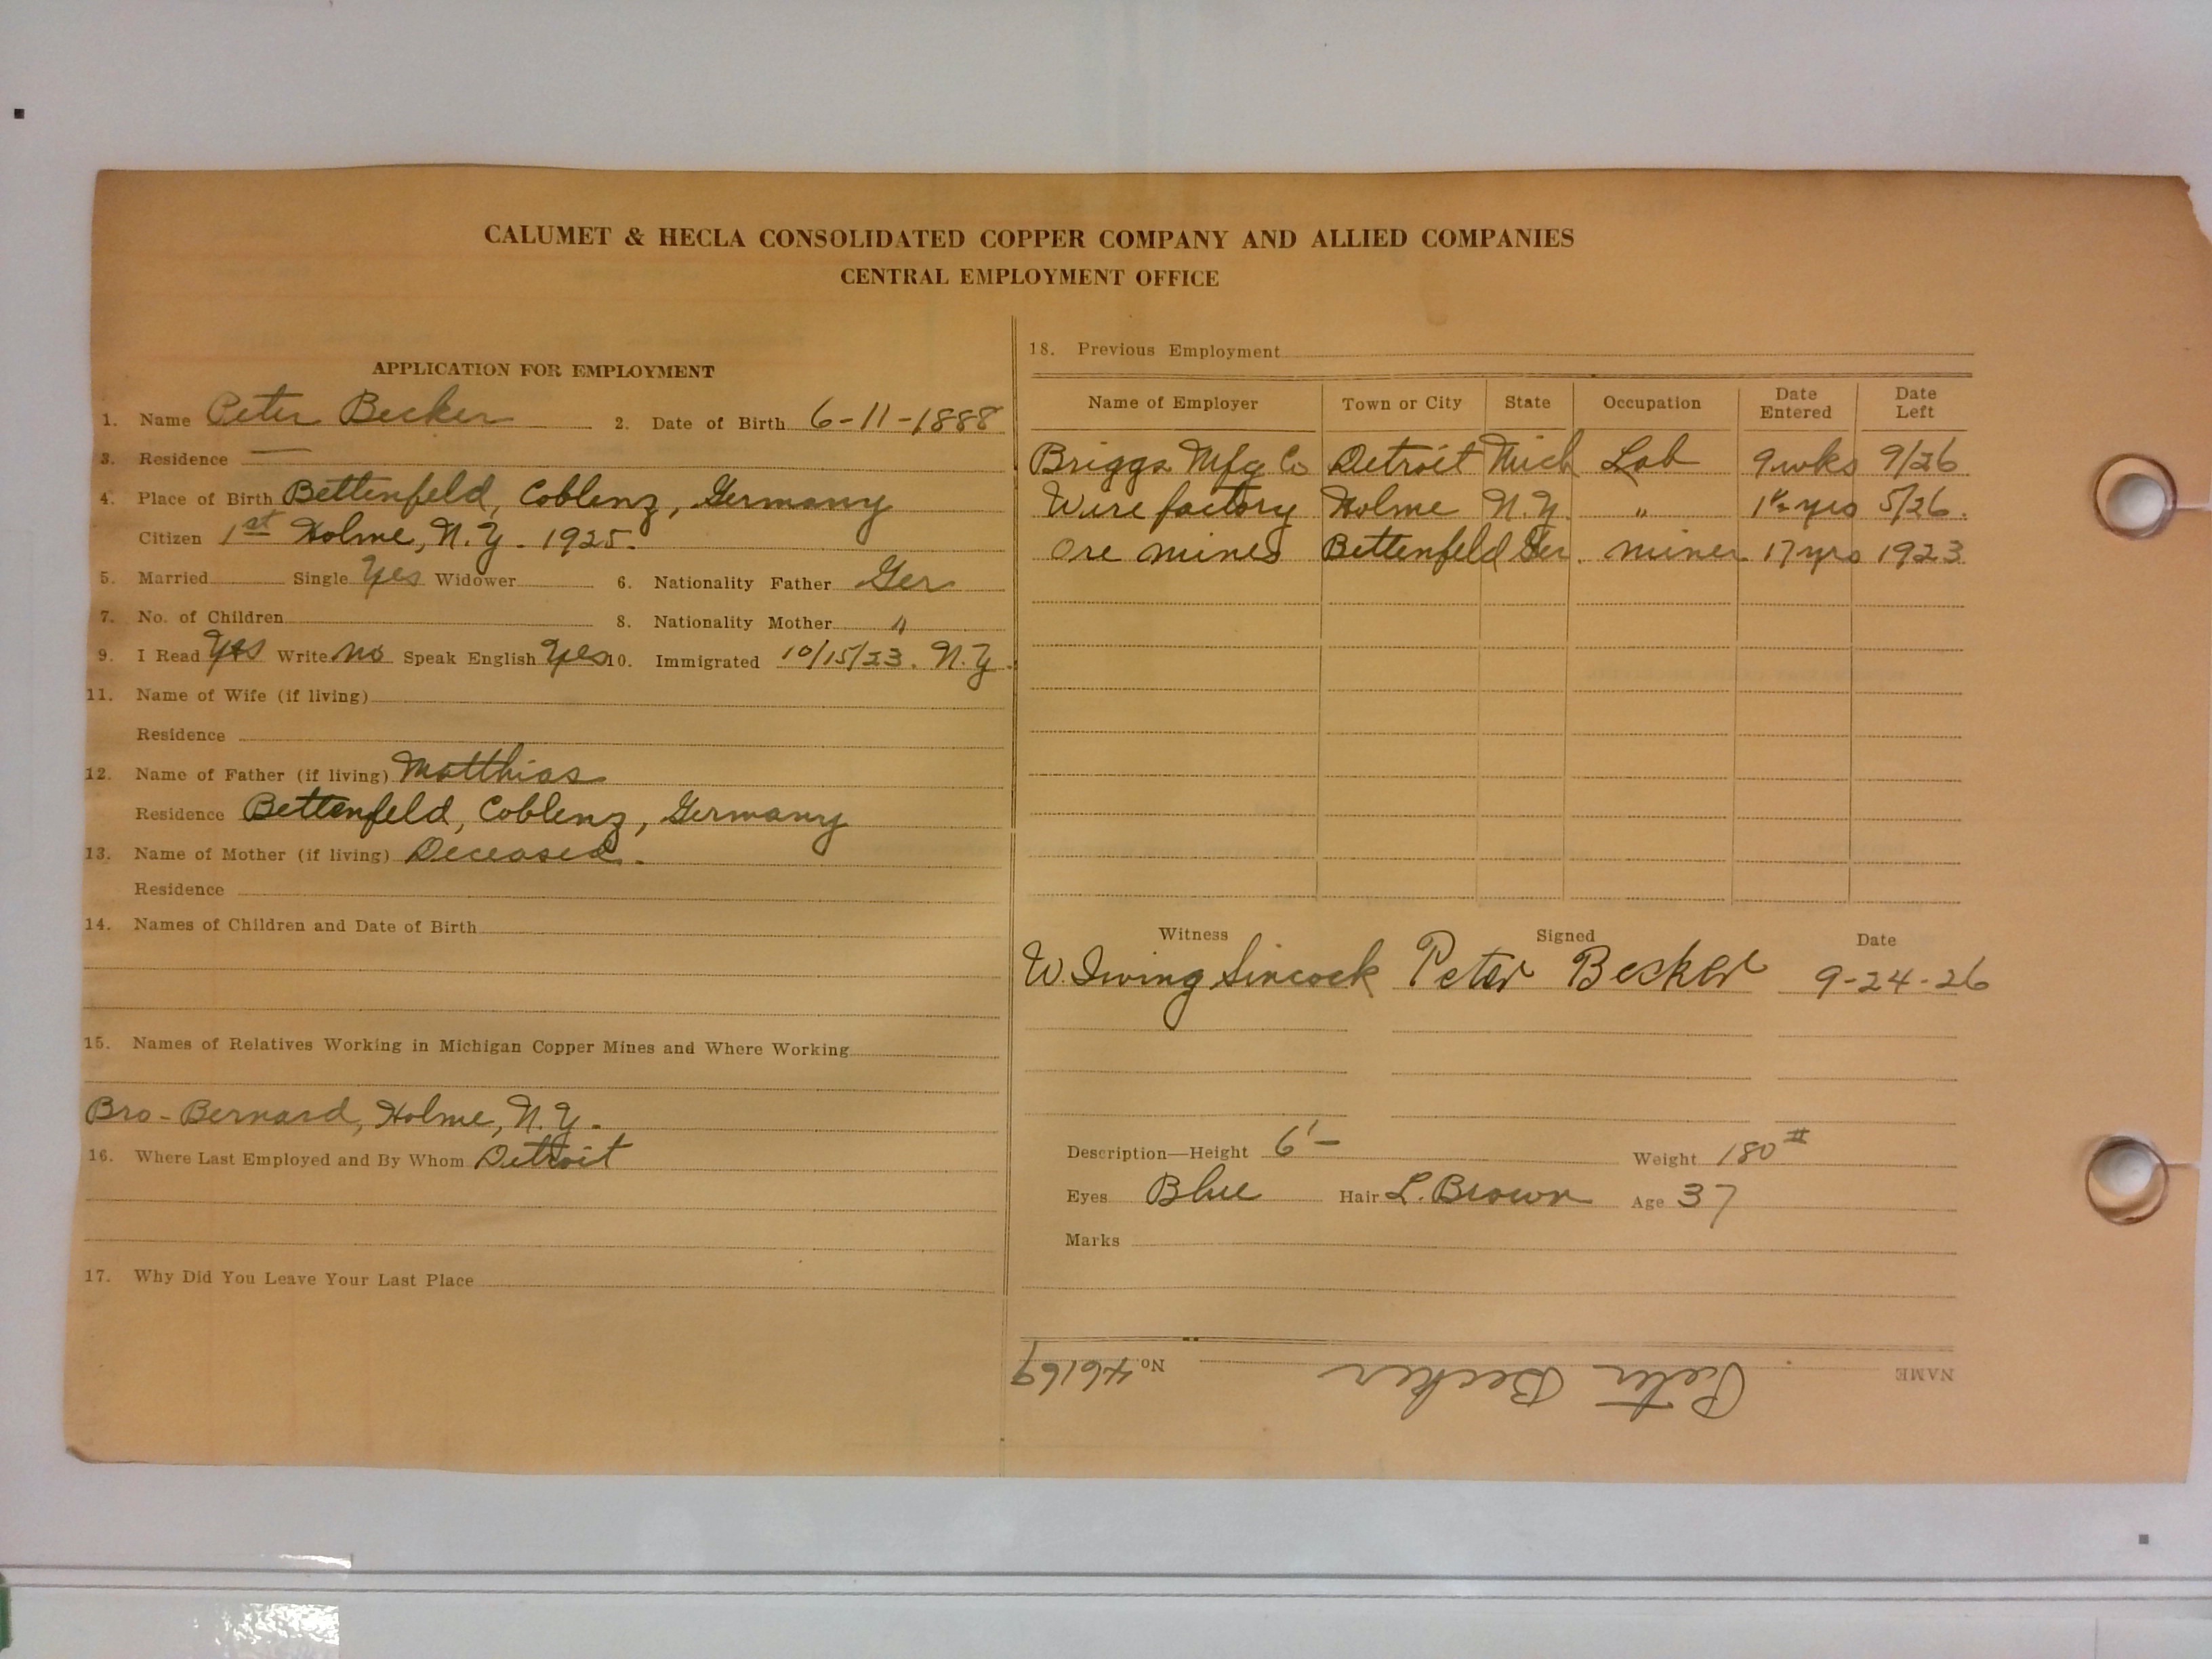 CALUMET & HECLA CONSOLIDATED COPPER COMPANY AND ALLIED COMPANIES
CENTRAL EMPLOYMENT OFFICE
APPLICATION FOR EMPLOYMENT
1. Name Peter Becker 2. Date of Birth 6-11-1888
3. Residence —
4. Place of Birth Bettenfeld, Coblenz, Germany
Citizen 1st Holme, N.Y. 1925.
5. Married Single Yes Widower 6. Nationality Father Ger
7. No. of Children 8. Nationality Mother "
9. I Read Yes Write no Speak English Yes 10. Immigrated 10/15/23. N.Y.
11. Name of Wife (if living)
Residence
12. Name of Father (if living) Matthias
Residence Bettenfeld, Coblenz, Germany
13. Name of Mother (if living) Deceased.
Residence
14. Names of Children and Date of Birth
15. Names of Relatives Working in Michigan Copper Mines and Where Working
Bro- Bernard, Holme, N.Y.
16. Where Last Employed and By Whom Detroit
17. Why Did You Leave Your Last Place
18. Previous Employment
Name of Employer Town or City State Occupation Date Entered Date Left
Briggs Mfg Co Detroit Mich Lab 9wks 9/26
Wire factory Holme N.Y. " 1½ yrs 5/26.
Ore mines Bettenfeld Ger. miner 17yrs 1923
Witness Signed Date
W. Irving Sincock Peter Becker 9-24-26
Description—Height 6'- Weight 180#
Eyes Blue Hair L. Brown Age 37
Marks
NAME Peter Becker No. 46169